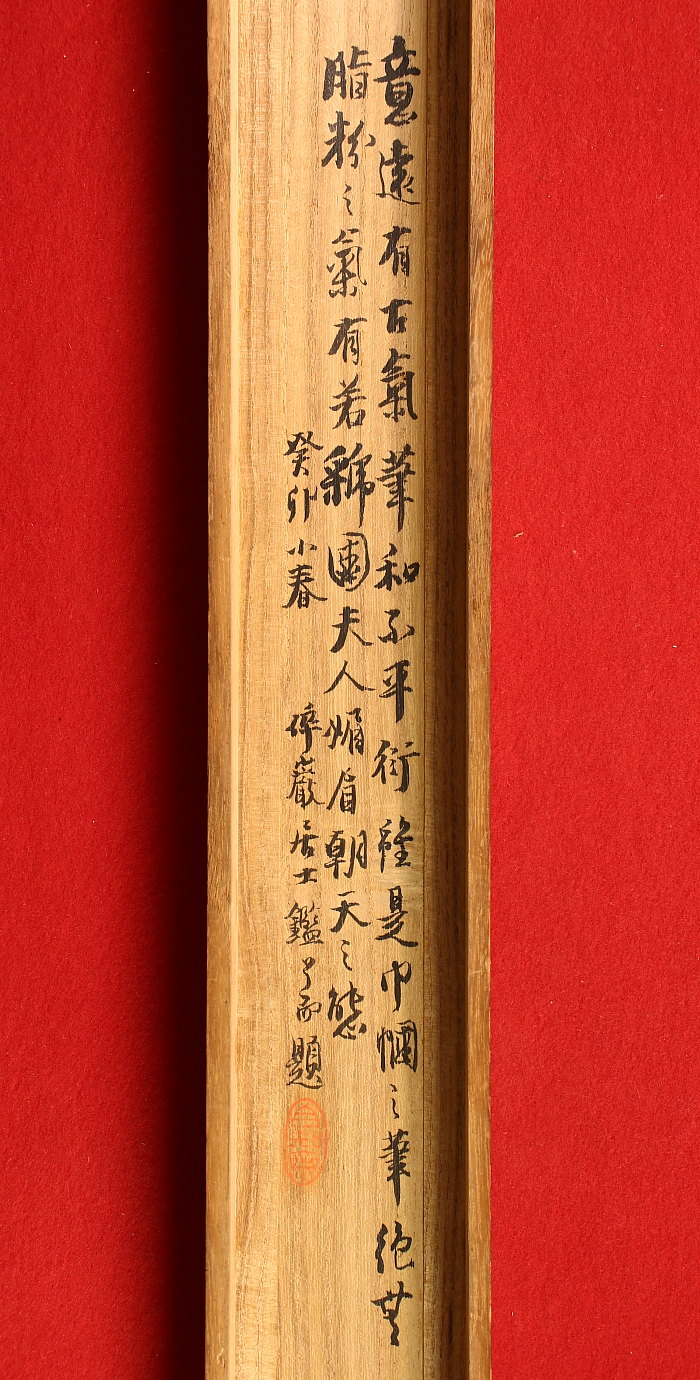 意遠有古氣筆和不平衍雖是巾幗之筆絶無
脂粉之氣有若虢國夫人媚眉朝天之態
癸卯小春　倬巖居士鑑了而題